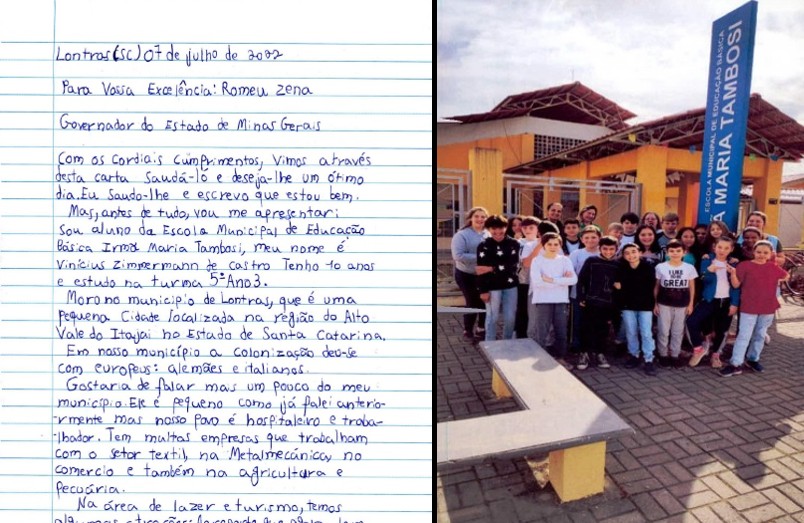 Lontras(SC) 07 de julho de 2022
Para Vossa Excelência: Romeu Zena
Governador do Estado de Minas Gerais
Com os Cordiais Cumprimentos, Vimos através
desta carta Saudá-lo e deseja-lhe um ótimo
dia. Eu Saudo-lhe e escrevo que estou bem.
Mas, antes de tudo, vou me apresentar:
Sou aluno da Escola Municipal de Educação
Básica Irmã Maria Tambosi, meu nome é
Vinícius Zimmermann de Castro Tenho 10 anos
e estudo na turma 5º Ano 3.
Moro no município de Lontras, que é uma
pequena Cidade localizada na região do Alto
Vale do Itajaí no Estado de Santa Catarina.
Em nosso município a colonização deu-se
com europeus: alemães e italianos.
Gostaria de falar mas um pouco do meu
município. Ele é pequeno como já falei anterio-
-rmente mas nosso povo é hospitaleiro e traba-
-lhador. Tem muitas empresas que trabalham
com o setor textil, na Metalmecânica, no
comercio e também na agricultura e
pecuária.
Na área de lazer e turismo, temos
ESCOLA MUNICIPAL DE EDUCAÇÃO BÁSICA
A MARIA TAMBOSI
I KNOW
I'M
GREAT